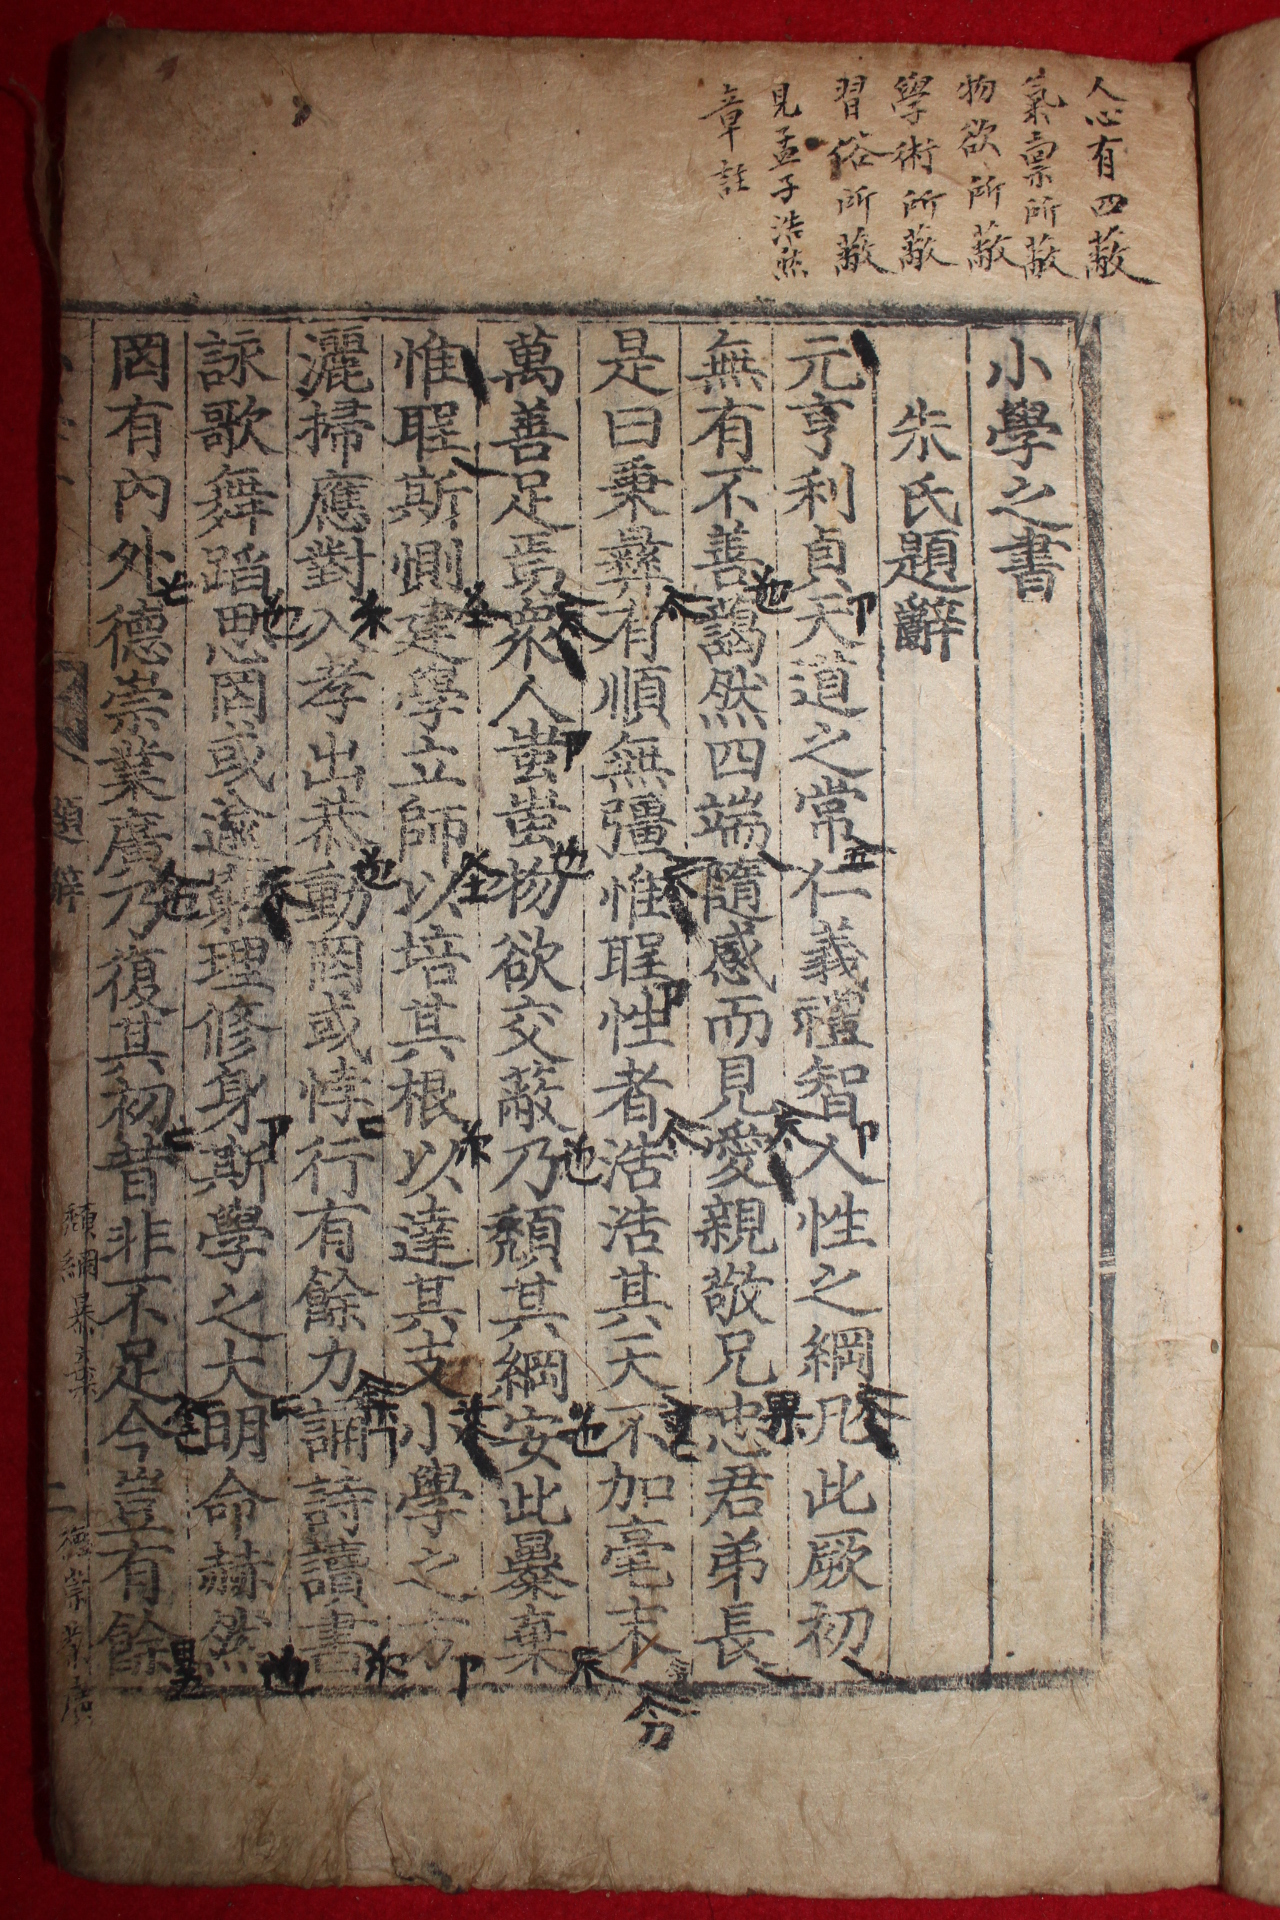 人心有四蔽
氣稟所蔽
物欲所蔽
學術所蔽
習俗所蔽
見孟子浩然
章註
小學之書
朱氏題辭
元亨利貞天道之常仁義禮智人性之綱凡此厥初
無有不善藹然四端隨感而見愛親敬兄忠君弟長
是曰秉彝有順無彊惟聖性者浩浩其天不加毫末
萬善足焉衆人蚩蚩物欲交蔽乃頹其綱安此暴棄
惟聖斯惻建學立師以培其根以達其支小學之方
灑掃應對入孝出恭動罔或悖行有餘力誦詩讀書
詠歌舞蹈思罔或逾窮理修身斯學之大明命赫然
罔有內外德崇業廣乃復其初昔非不足今豈有餘
題辭
二
頹綱暴棄
德崇業廣